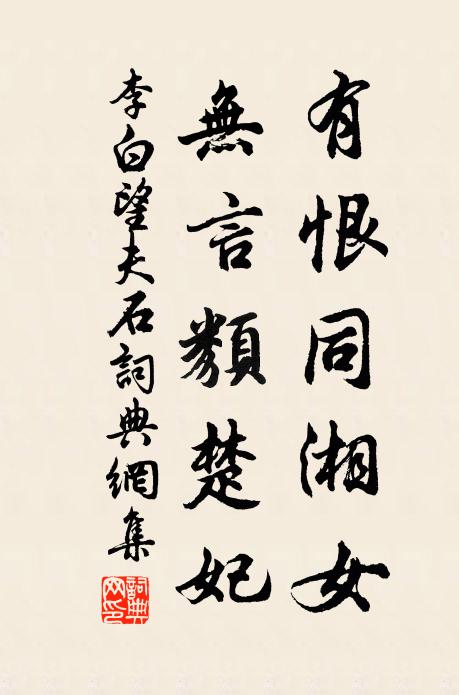 有恨同湘女
無言類楚妃
李白望夫石詞典網集
詞典網印